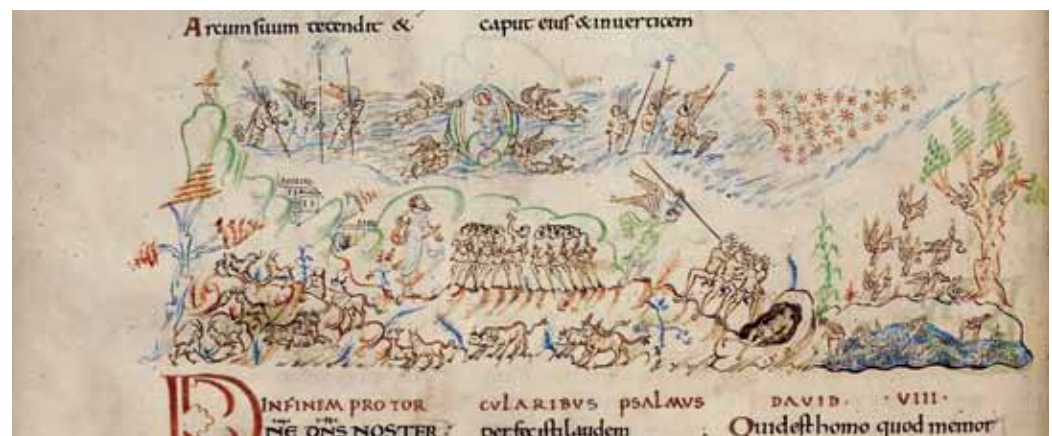 Arcum suum tetendit &
caput eius & inuerticem
INFINEM PRO TOR
CULARIBUS PSALMUS
DAVID · VIII ·
DNE DNS NOSTER
perfecisti laudem
Quid est homo quod memor